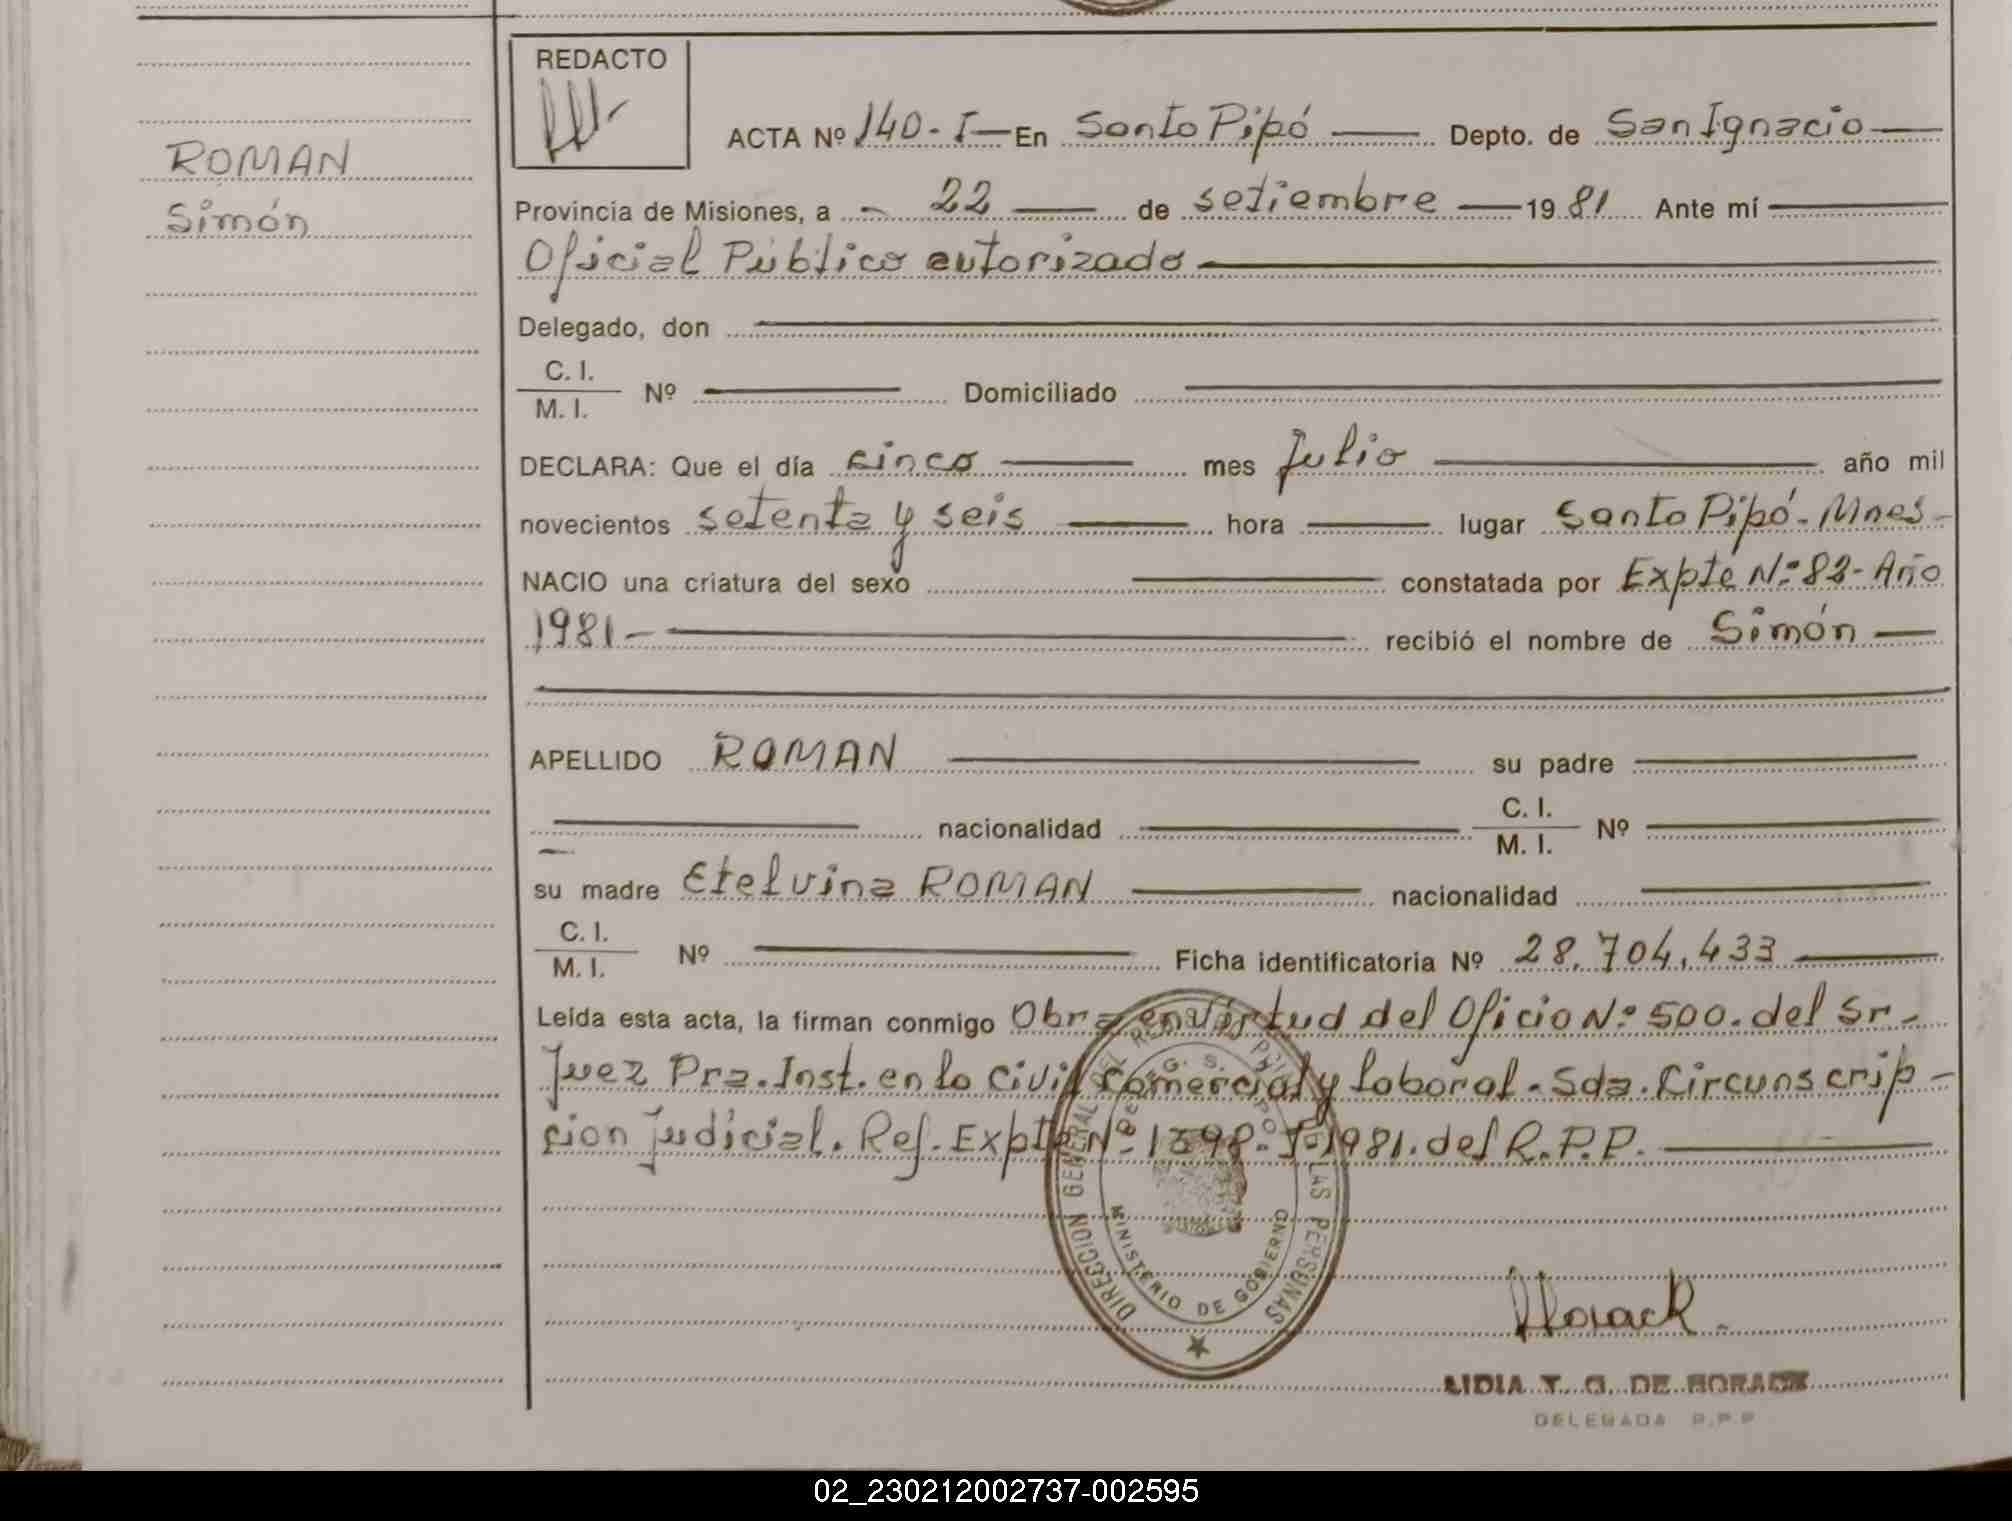 REDACTO
ROMAN
Simón
ACTA Nº 140-I En Santo Pipó Depto. de San Ignacio
Provincia de Misiones, a 22 de setiembre 1981 Ante mí
Oficial Público autorizado
Delegado, don
C. I.
M. I. Nº Domiciliado
DECLARA: Que el día cinco mes Julio año mil
novecientos setenta y seis hora lugar Santo Pipó-Mnes-
NACIO una criatura del sexo constatada por Expte Nº 82-Año
1981- recibió el nombre de Simón
APELLIDO ROMAN su padre
nacionalidad C. I. M. I. Nº
su madre Etelvina ROMAN nacionalidad
C. I.
M. I. Nº Ficha identificatoria Nº 28.704.433
Leída esta acta, la firman conmigo Obra en virtud del Oficio Nº 500. del Sr-
Juez Pra. Inst. en lo Civil Comercial y laboral. Sda. Circunscrip-
cion Judicial. Ref. Expte Nº 1398-I-1981. del R.P.P.
DIRECCION GENERAL DEL LAS PERSONAS
MINISTERIO DE GOBIERNO
Horack
LIDIA T. G. DE HORACK
DELEGADA R.P.P
02_230212002737-002595